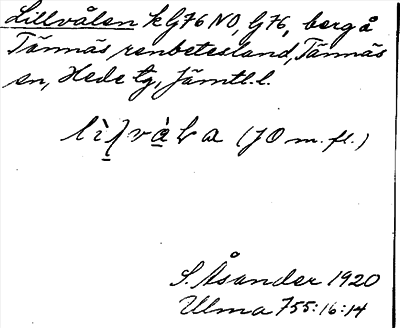 Lillvålen k G76 NO, G76, berg å
Tännäs renbetesland, Tännäs
sn, Hede tg, Jämtl.l.
(JO m.fl.)
S. Åsander 1920
Ulma 755:16:14